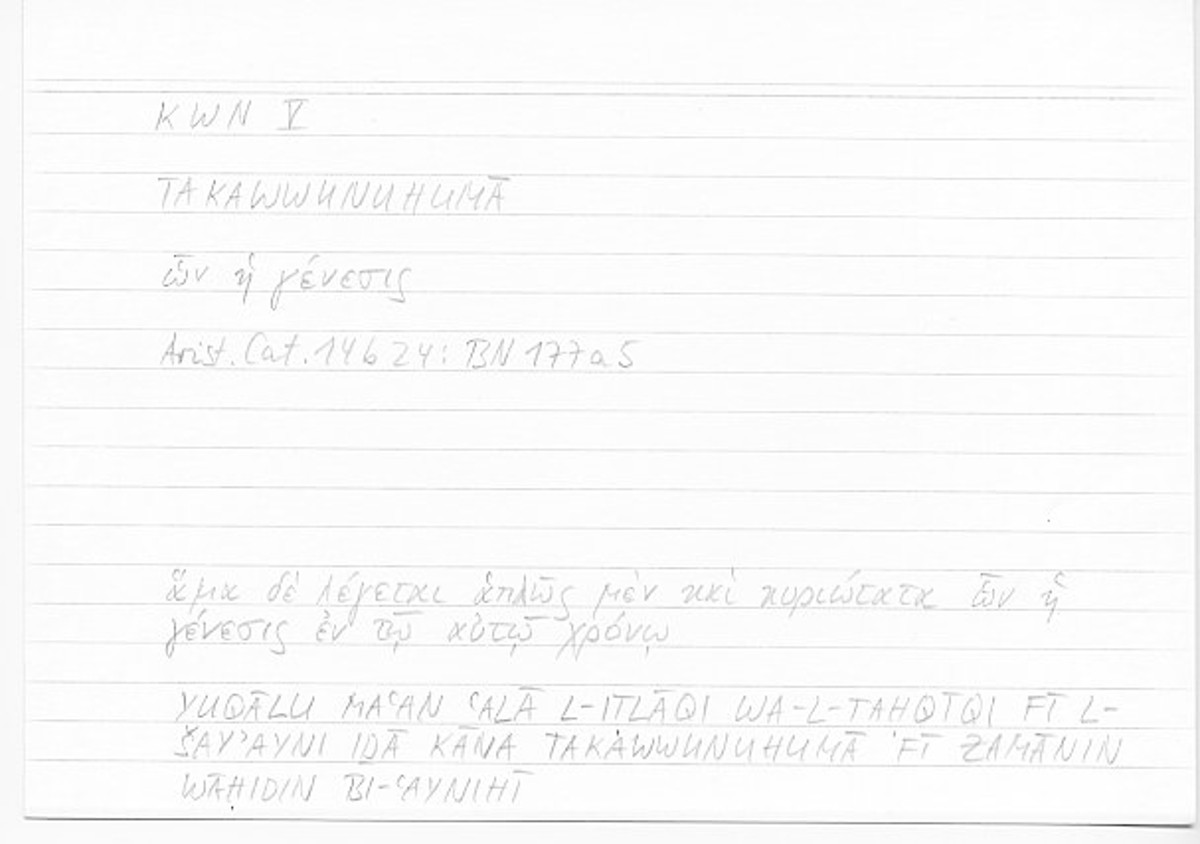 KWN V
TAKAWWUNUHUMĀ
ὧν ἡ γένεσις
Arist. Cat. 14b24: BN 177a5
ἅμα δὲ λέγεται ἁπλῶς μὲν καὶ κυριώτατα ὧν ἡ
γένεσις ἐν τῷ αὐτῷ χρόνῳ
YUQĀLU MAʿAN ʿALĀ L-ITLĀQI WA-L-TAHQĪQI FĪ L-
ŠAYʾAYNI IḎĀ KĀNA TAKAWWUNUHUMĀ FĪ ZAMĀNIN
WĀḤIDIN BI-ʿAYNIHĪ